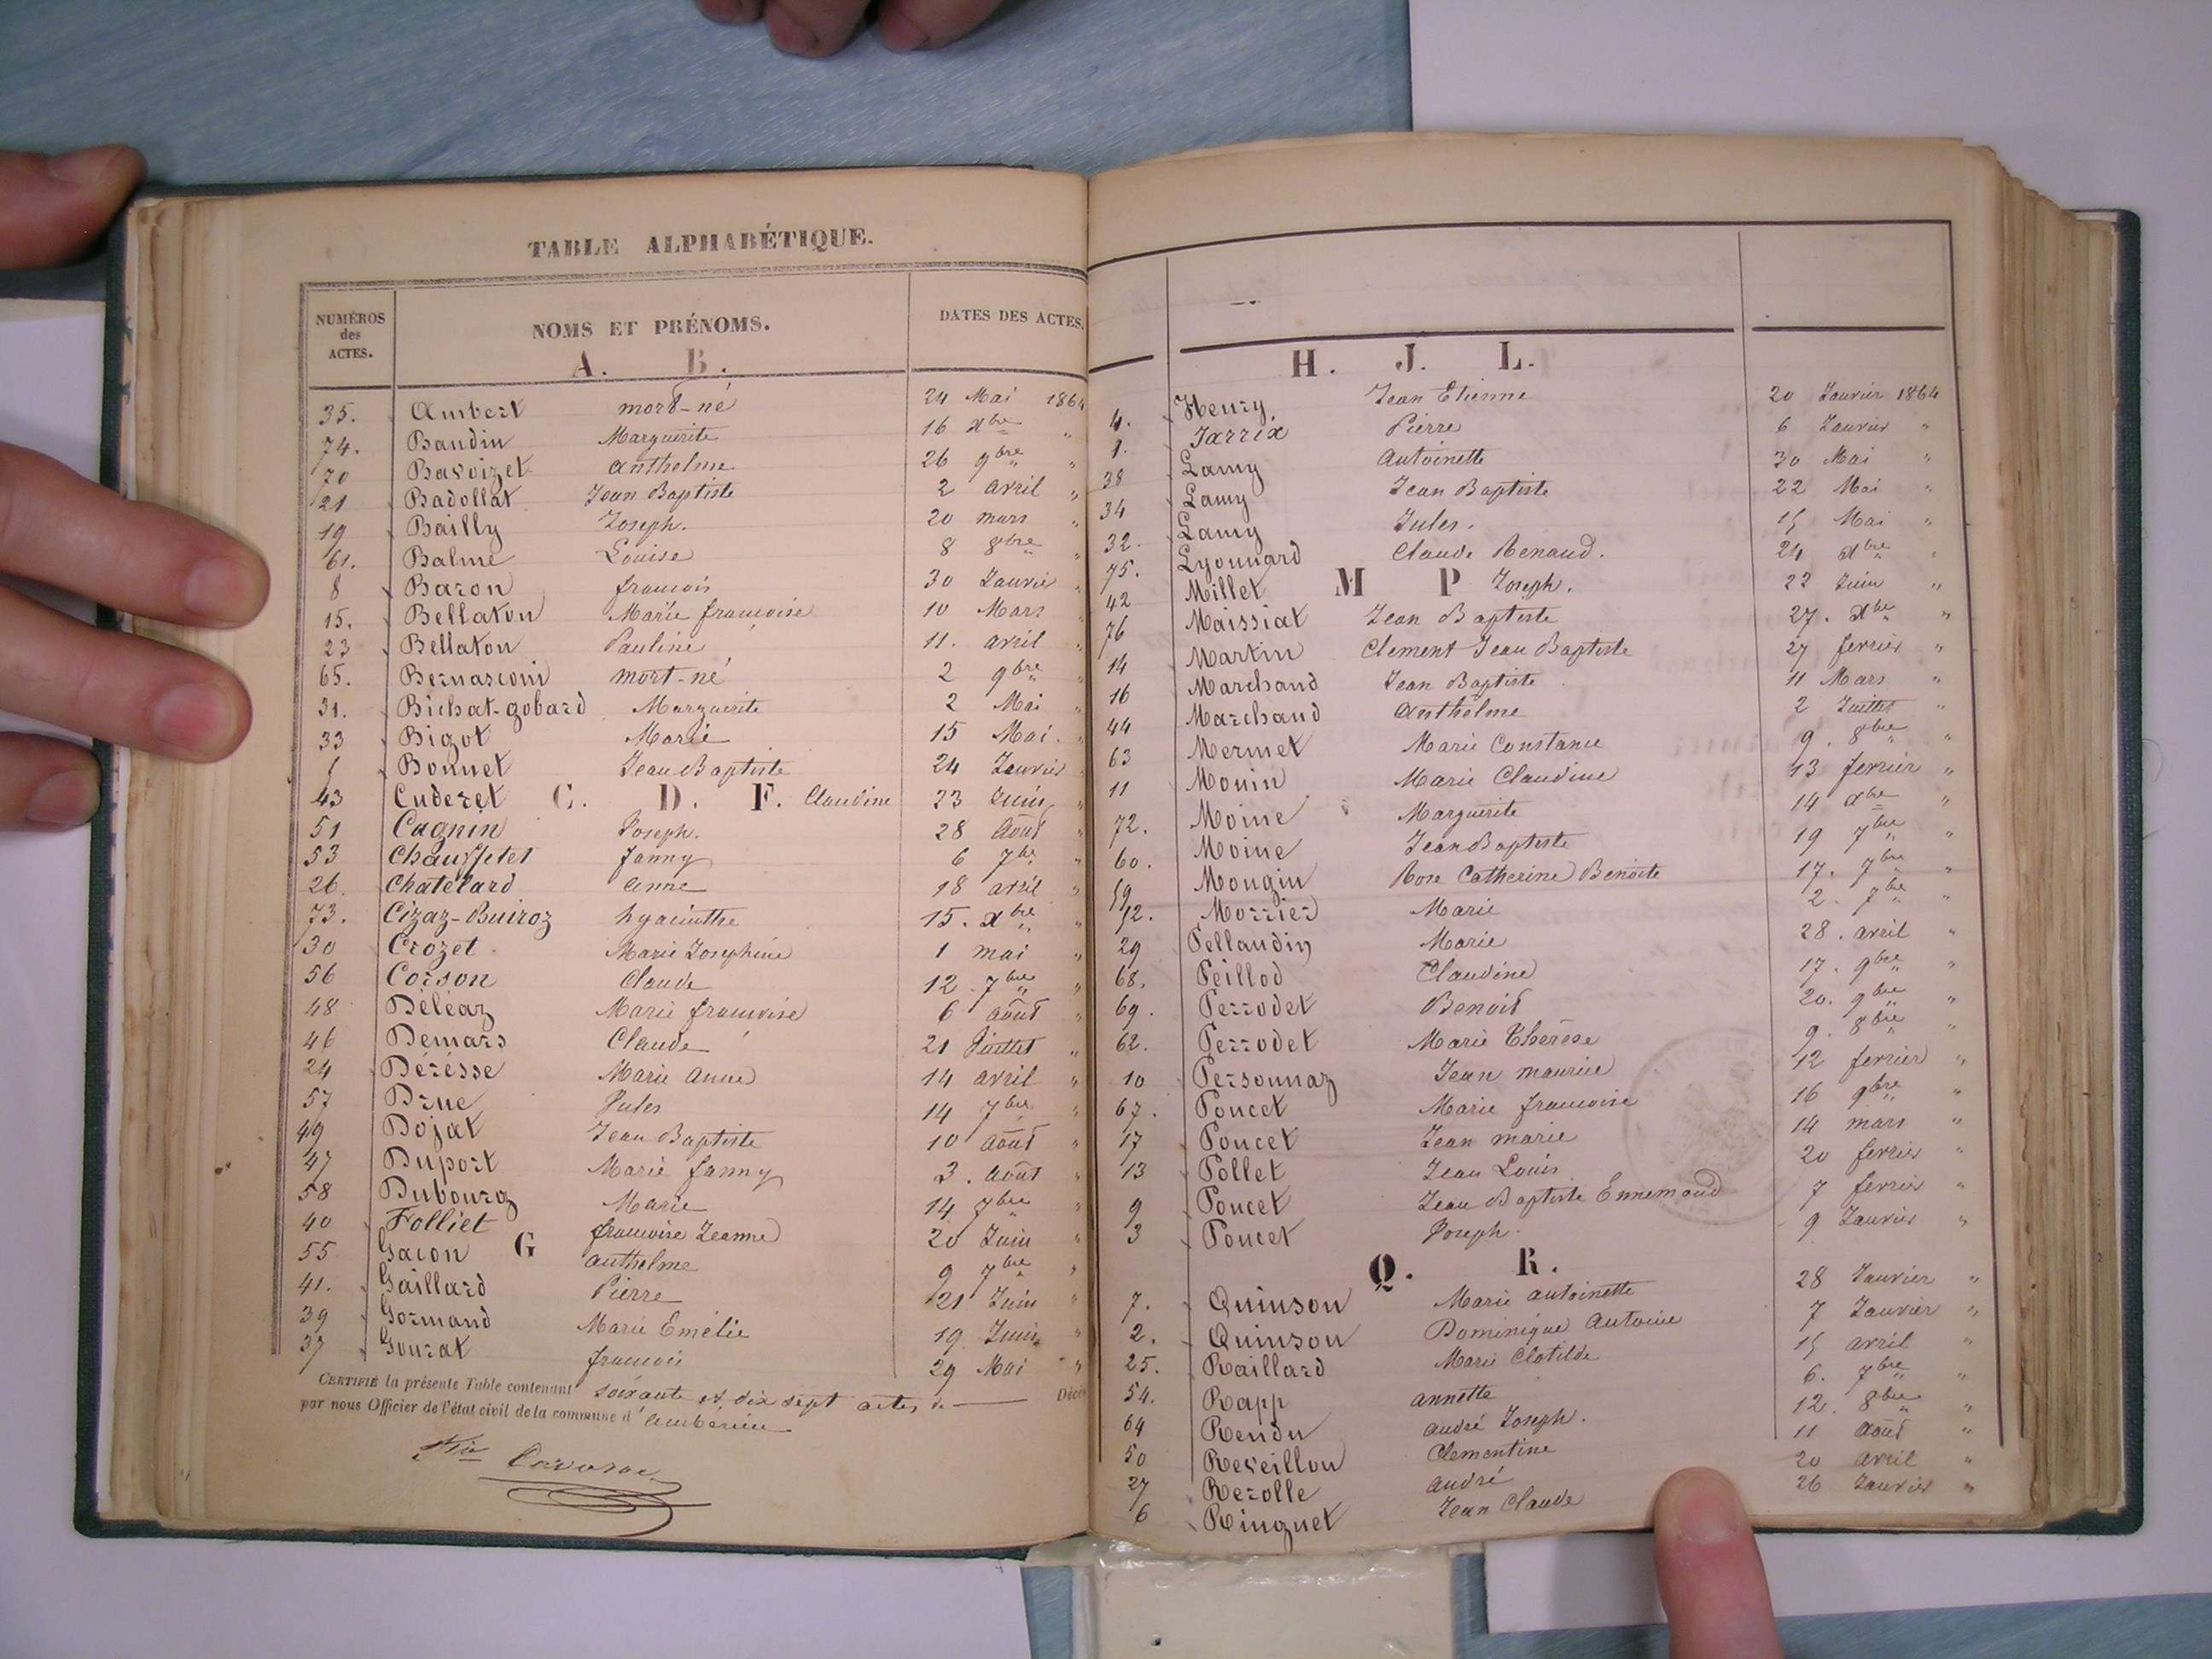 TABLE ALPHABÉTIQUE.
NUMÉROS des ACTES. NOMS ET PRÉNOMS. DATES DES ACTES.
A. B.
35. Ambert mort-né 24 Mai 1864
74. Baudin Marguerite 16 Xbre "
70 Bavoizet anthelme 26 9bre "
21 Badollat Jean Baptiste 2 avril "
19 Bailly Joseph. 20 mars "
61. Balme Louise 8 8bre "
8 Baron francois 30 Janvier "
15. Bellaton Marie francoise 10 Mars "
23 Bellaton Pauline 11. avril "
65. Bernasconi mort-né 2 9bre "
31. Bichat-gobard Marguerite 2 Mai "
33 Bigot Marie 15 Mai. "
Bonnet Jean Baptiste 24 Janvier "
C. D. F.
43 Cuderet Claudine 23 Juin "
51 Cagnin Joseph. 28 Août "
53 Chauffetet fanny 6 7bre "
26. Chatelard anne 18 avril "
73. Cizaz-Buiroz hyacinthe 15. Xbre "
30 Crozet Marie Josephine 1 mai "
56 Corson Claude 12. 7bre "
48 Déléaz Marie francoise 6 août "
46 Demars Claude 21 Juillet "
24 Dérésse Marie Anne 14 avril "
57 Drue Jules 14 7bre "
49 Dojat Jean Baptiste 10 août "
47 Duport Marie fanny 3. août "
58 Dubourg Marie 14 7bre "
40 Folliet francoise Jeanne 20 Juin "
G
55 Gacon anthelme 9 7bre "
41. Gaillard Pierre 21 Juin "
39 Gormand Marie Emélie 19 Juin "
37 Gourat francois 29 Mai "
CERTIFIÉ la présente Table contenant soixante et dix sept actes de Décès
par nous Officier de l'état civil de la commune d'Ambérieu
H. J. L.
4. Henry Jean Etienne 20 Janvier 1864
1. Jarrix Pierre 6 Janvier "
38 Lamy Antoinette 30 Mai "
34 Lamy Jean Baptiste 22 Mai "
32. Lamy Jules. 15 Mai "
75. Lyonnard Claude Renaud. 24 Xbre "
M P
42 Millet Joseph. 23 Juin "
76 Maissiat Jean Baptiste 27. Xbre "
14 Martin Clement Jean Baptiste 27 fevrier "
16 Marchand Jean Baptiste 11 Mars "
44 Marchand Anthelme 2 Juillet "
63 Mermet Marie Constance 9. 8bre "
11 Monin Marie Claudine 13 fevrier "
72. Moine Marguerite 14 Xbre "
60. Moine Jean Baptiste 19 7bre "
59 Mougin Rose Catherine Benoite 17. 7bre "
Morrier Marie 2. 7bre "
29 Pellaudin Marie 28. avril "
68. Peillod Claudine 17. 9bre "
69. Perrodet Benoit 20. 9bre "
62. Perrodet Marie Thérèse 9. 8bre "
10 Personnaz Jean maurice 12 fevrier "
67. Poncet Marie francoise 16 9bre "
17 Poncet Jean marie 14 mars "
13 Pollet Jean Louis 20 fevrier "
9 Poncet Jean Baptiste Ennemond 7 fevrier "
3 Poncet Joseph. 9 Janvier "
Q. R.
7. Quinson Marie antoinette 28 Janvier "
2. Quinson Dominique Antoine 7 Janvier "
25. Raillard Marie Clotilde 15 avril "
54. Rapp annette 6. 7bre "
64 Rendu andré Joseph. 12. 8bre "
50 Reveillon Clementine 11 août "
27 Rezolle andré 20 avril "
6 Ringuet Jean Claude 26 Janvier "